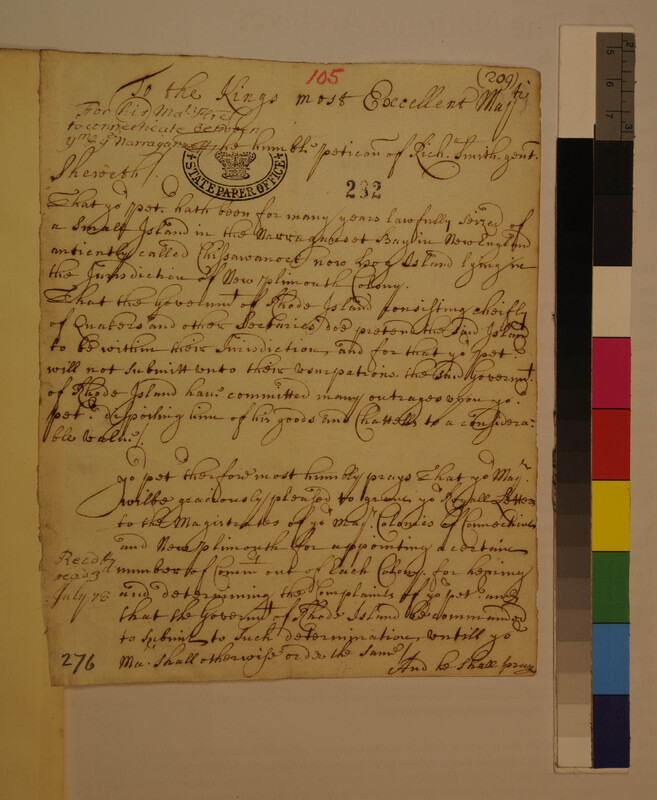 105
(209)
To the Kings most Excellent Maj:tie
For his Maj:
to com̅unicate
ye Narragan
The humble peticon of Rich: Smith gent.
Sheweth.
STATE PAPER OFFICE
232
That yor pet.r hath been for many years lawfully seized of
a Small Island in the Narraganset Bay in New England
antiently called Chissawanock now hog Island lying in
the Jurisdiction of New plimouth Colony.
That the Governmt of Rhode Island consisting cheifly
of Quakers and other Sectaries, doe pretend the said Island
to be within their Jurisdiction, and for that yor pet.r
will not Submitt unto their usurpations the said Governmt
of Rhode Island have committed many outrages upon yor
pet.r dispoiling him of his goods and Chattells to a considera-
ble value.
Yor pet.r therfore most humbly prays That yor Maj.ty
wilbe graciously pleased to grant yor Royall Letter
to the Magistrates of yor Maj.ts Colonies of Connecticut
and New plimouth for appointing a certaine
number of Com.rs out of each Colony, for hearing
and determining the Complaints of yor pet.r and
that the Governmt of Rhode Island be commanded
to submit to such determination, untill yor
Ma. shall otherwise order the same
And he shall pray
Recd &
read 3
July 78
276